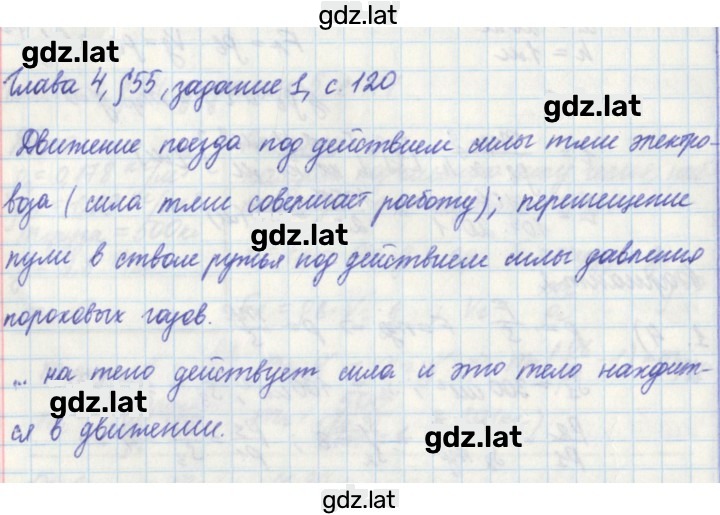 gdz.lat
gdz.lat
Глава 4, §55, задание 1, с. 120
gdz.lat
Движение поезда под действием силы тяги электро-
воза (сила тяги совершает работу); перемещение
gdz.lat
пули в стволе ружья под действием силы давления
пороховых газов.
... на тело действует сила и это тело находит-
gdz.lat
ся в движении.
gdz.lat
gdz.lat